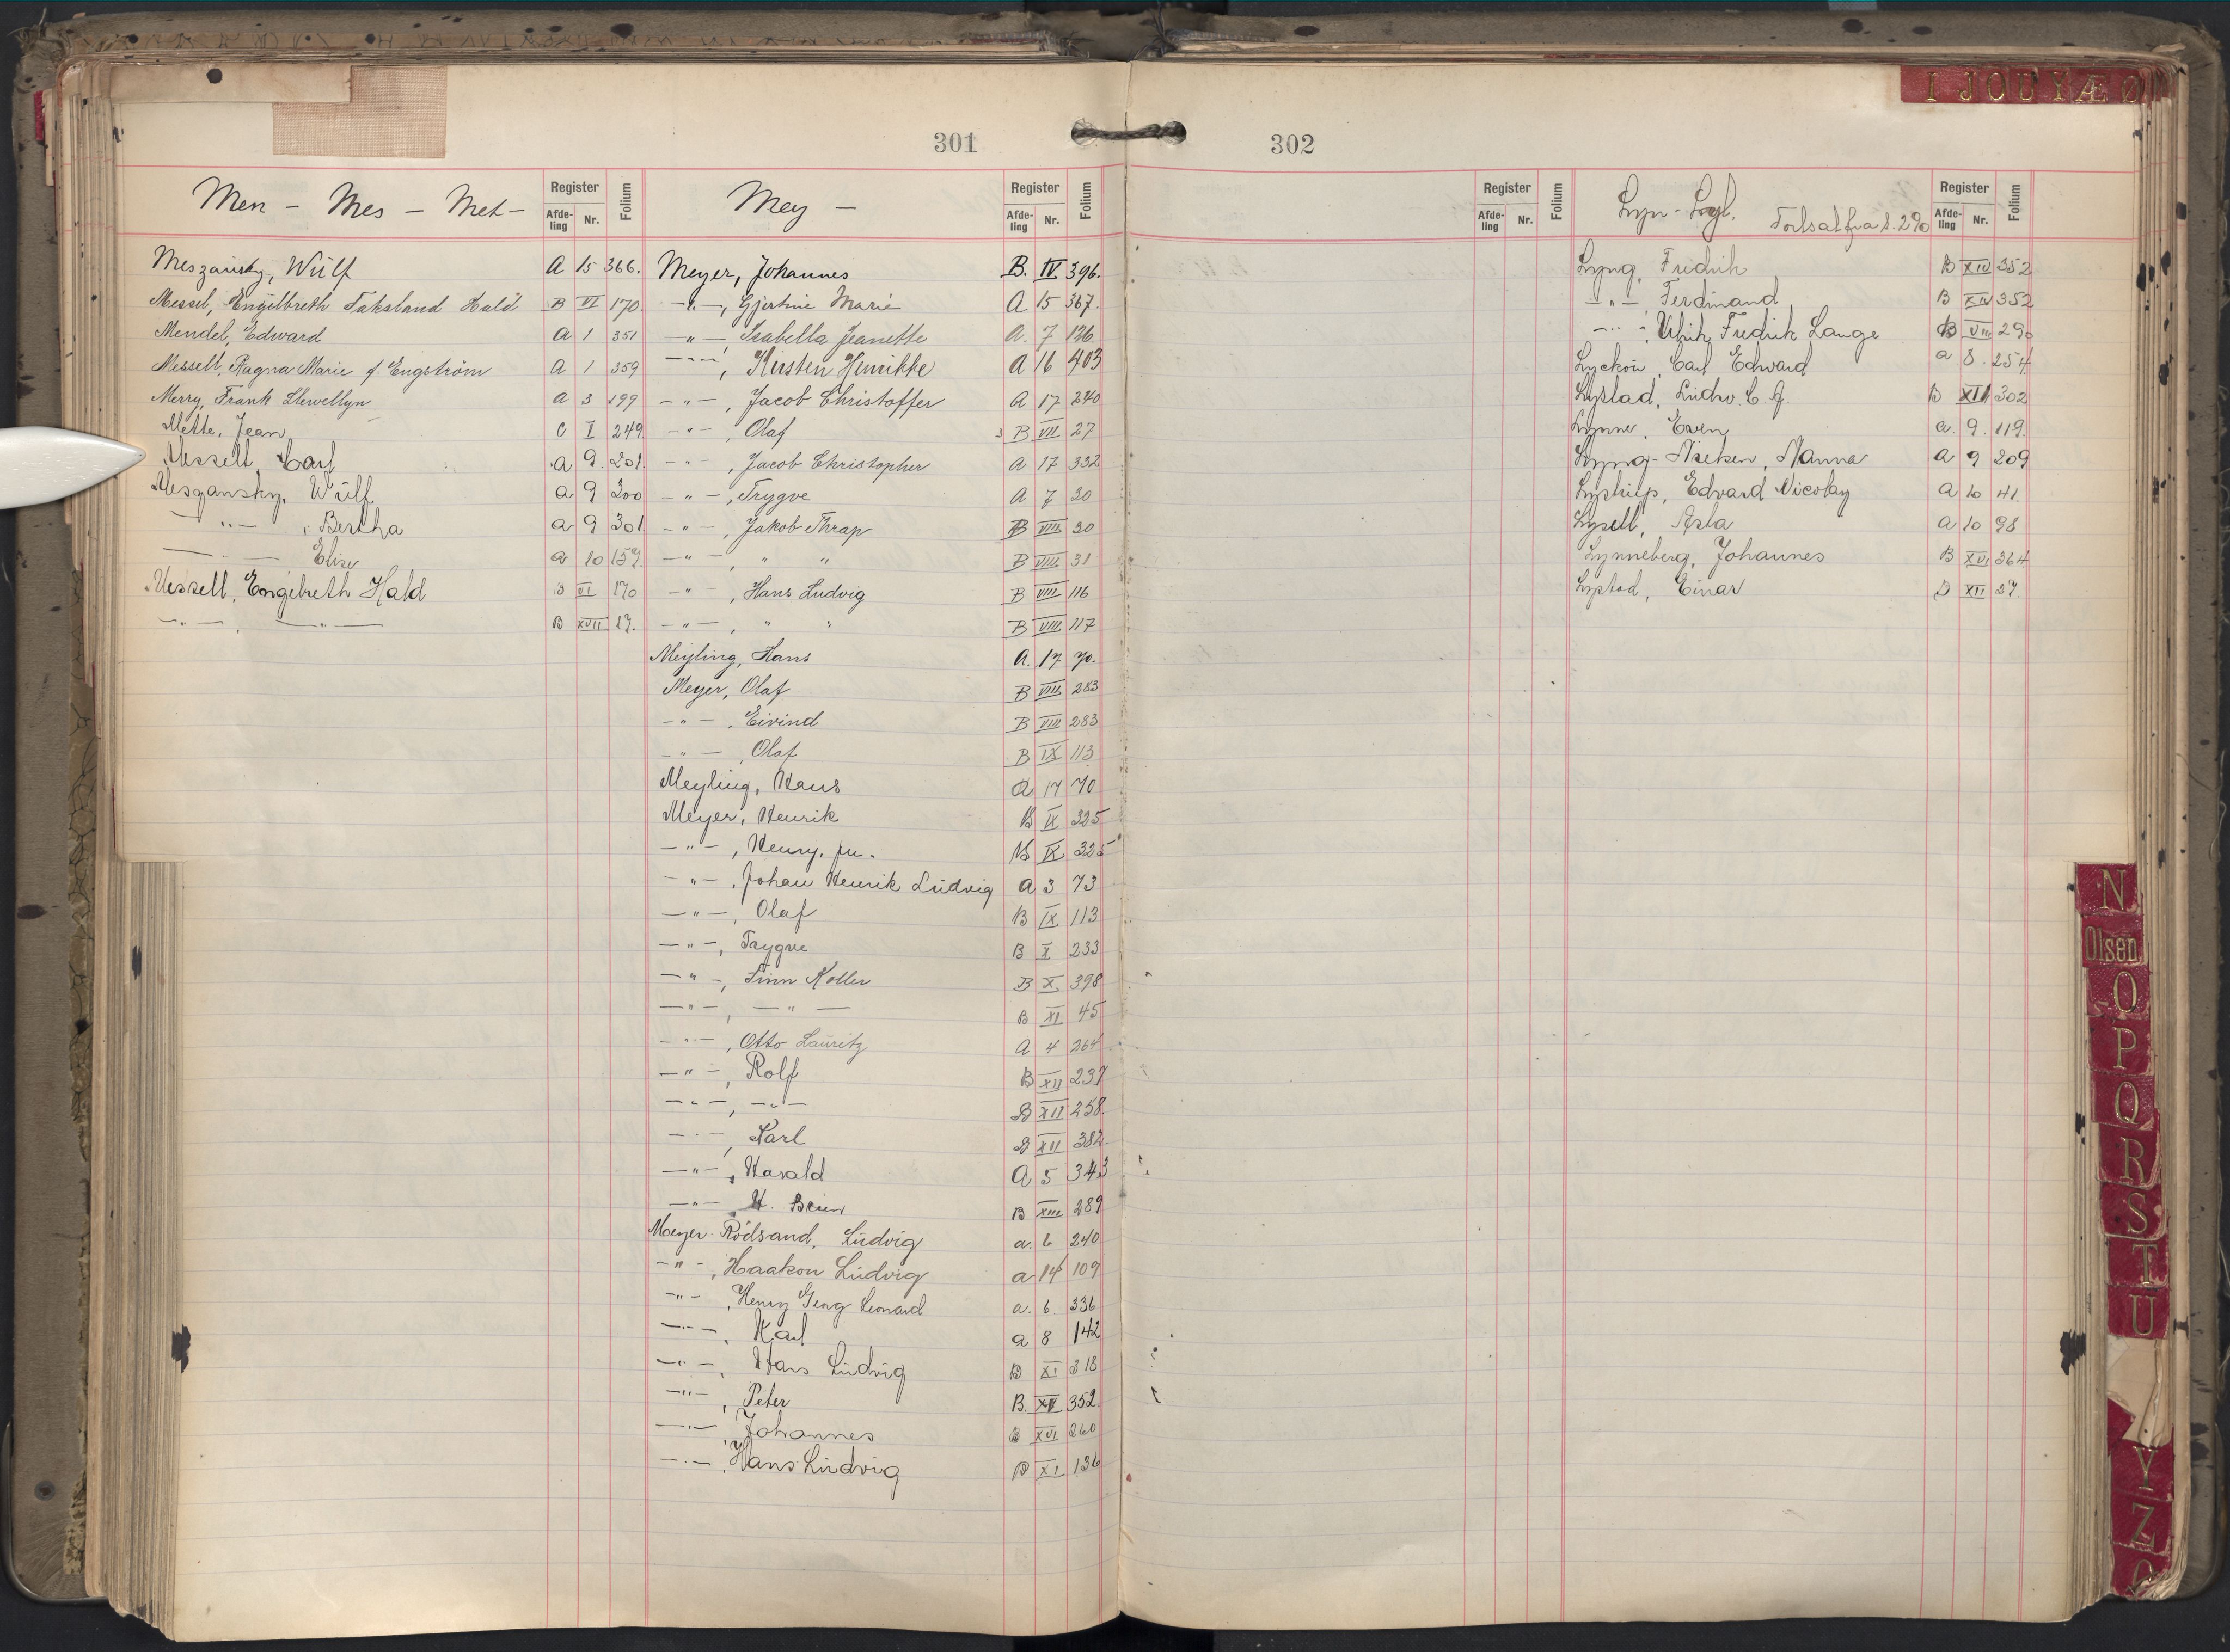 301
Men - Mes - Met -
Register
Afde-
ling
Nr.
Folium
Meszansky, Wulf A 15 366.
Messel, Engelbreth Faksland Hald B VI 170
Mendel, Edward A 1 351
Messell, Ragna Marie f. Engström A 1 359
Merry, Frank Llewellyn A 3 199
Mette, Jean C I 249
Messell, Carl A 9. 201.
Mesgansky, Wulf a 9 300
-"- , Bertha a 9 301
-"- Elise a 10 157.
Messell, Engebreth Hald B VI 170
-"-, -"- B XVII 27.
Mey -
Register
Afde-
ling
Nr.
Folium
Meyer, Johannes B. IV 396.
-"-, Gjertine Marie A 15 367.
-"- Isabella Jeanette A. 7 126.
-"-, Kirsten Henrikke A 16 403
-"-, Jacob Christoffer A 17 240
-"-, Olaf B VII 27
-"-, Jacob Christopher A 17 332
-"-, Trygve A 7 20
-"-, Jakob Thrap B VIII 30
-"-, " " B VIII 31
-"-, Hans Ludvig B VIII 116
-"-, " " B VIII 117
Meyling, Hans A. 17 70.
Meyer, Olaf B VIII 283
-"-, Eivind B VIII 283
-"-, Olaf B IX 113
Meyling, Hans A 17 70
Meyer, Henrik B IX 325
-"-, Henry, jn. B IX 325
-"-, Johan Henrik Ludvig A 3 73
-"-, Olaf B IX 113
-"-, Trygve B X 233
-"-, Finn Koller B X 398
-"-, -"- B XI 45
-"-, Otto Lauritz A 4 264
-"-, Rolf B XII 237
-"-, -"- B XII 258.
-"-, Karl B XII 382.
-"-, Harald A 5 343
-"-, H. Bruun B XIII 289
Meyer-Rödsand, Ludvig a. 6 240
-"-, Haakon Ludvig a 14 109
-"-, Henry Georg Leonard a. 6. 336
-"-, Karl a 8 142
-"-, Hans Ludvig B XI 318
-"-, Peter B. XV 352.
-"-, Johannes B XVI 260
-"-, Hans Ludvig B XI 136
302
Register
Afde-
ling
Nr.
Folium
Lyn - Fortsat fra s. 290
Register
Afde-
ling
Nr.
Folium
Lyng, Fredrik B XIV 352
-"- Ferdinand B XIV 352
-"-, Ulrik Fredrik Lange B VIII 290
Carl Edward a 8. 254
Lystad, Ludv. C. J. B XIII 302
Lynne, Even a. 9. 119.
Lyng-Nielsen, Nanna a 9 209
Lystrup, Edvard Nicolay a 10 41.
Lysell, Asta a 10 98
Lynneberg, Johannes B XVI 364
Lystad, Einar B XII 37.
I J O U Y Æ Ø
N
Olsen
O
P
Q
R
S
T
U
Y
Z